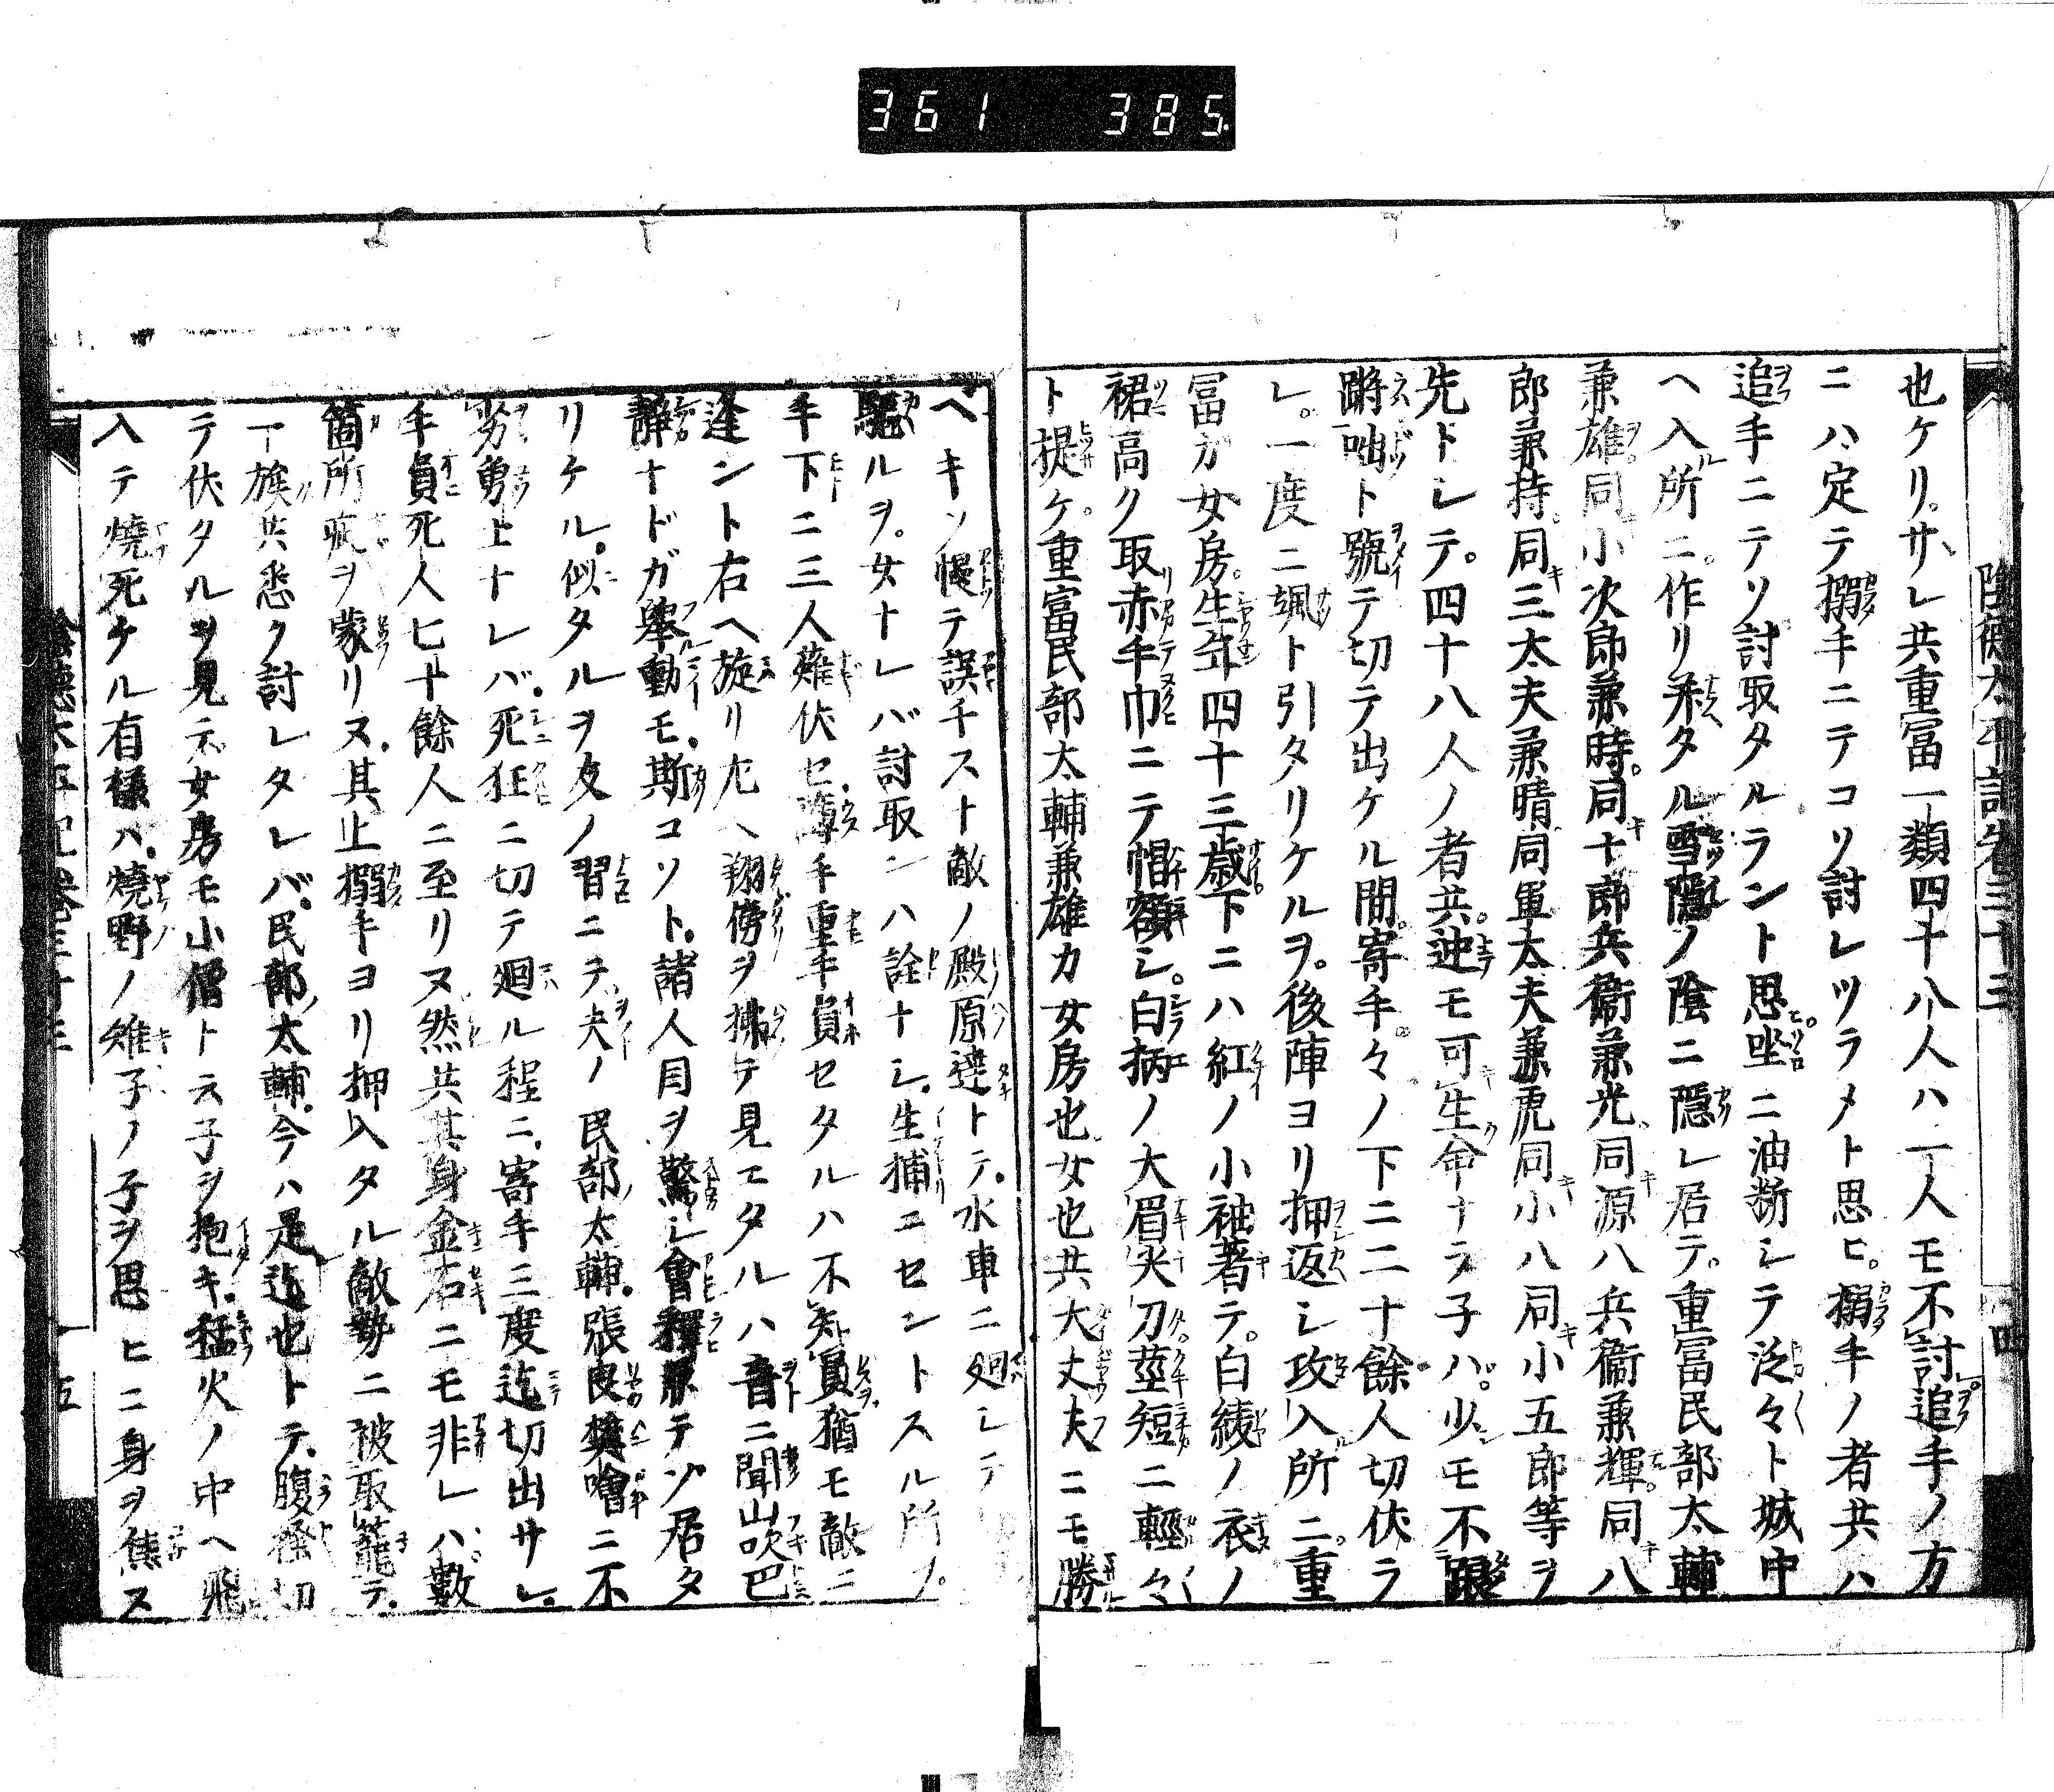 361 385
陰徳太平記巻三十三
四
也ケリ。サレ共重冨一類四十八人ハ一人モ不討追手ノ方
ニハ定テ搦手ニテコソ討レツラメト思ヒ。搦手ノ者共ハ
追手ニテソ討取タルラント思。坐ニ油断シテ泛々ト城中
ヘ入所ニ。作リ釆タル雪隠ノ陰ニ隠レ居テ。重冨民部太輔
兼雄同小次郎兼時。同十郎兵衞兼光同源八兵衞兼輝同八
郎兼持。同三太夫兼晴同軍太夫兼虎同小八同小五郎等ヲ
先トシテ。四十八人ノ者共。迚モ可生命ナラ子ハ。少モ不
蹡咄ト號テ切テ出ケル間。寄手。々ノ下ニ二十餘人切伏ラ
レ。一度ニ颯ト引タリケルヲ。後陣ヨリ押返シ攻入所ニ。重
冨ガ女房。生年四十三歳下ニハ紅ノ小袖著テ。白綾ノ衣ノ
裙高ク取赤手巾ニテ帽額シ。白柄ノ大眉尖刀莖短ニ輕々
ト提ケ。重冨民部太輔兼雄カ女房也女也共大丈夫ニモ勝
ヘキソ慢テ誤チスト敵ノ殿原達トテ。水車ニ廻シテ
驅ルヲ。女ナレバ討取ンハ詮ナシ。生捕ニセントスル所
手下ニ三人薙伏セ。薄手重手負セタルハ不知員猶モ敵ニ
逢ント右ヘ旋リ左ヘ翔傍ヲ拂テ見エタルハ音ニ聞山吹巴
静ナドガ舉動モ。斯コソト。諸人目ヲ驚シ會釋兼テゾ居タ
リケル。似タルヲ友ノ習ニテ夫ノ民部太輔。張良樊噲ニ不
劣勇士ナレバ。死狂ニ切テ廻ル程ニ。寄手三度迄切出サレ。
手負死人七十餘人ニ至リヌ然共其身金石ニモ非レハ數
箇所疵ヲ蒙リヌ。其上搦手ヨリ押入タル敵勢ニ被取籠テ。
一族共悉ク討レタレバ。民部太輔。今ハ是迄也トテ。腹掻切
テ伏タルヲ見テ女房モ小僧トス子ヲ抱キ。猛火ノ中ヘ飛
入テ燒死ケル有様ハ。燒野ノ雉子ノ子ヲ思ヒニ身ヲ焦ス
陰徳太平記巻三十三
五